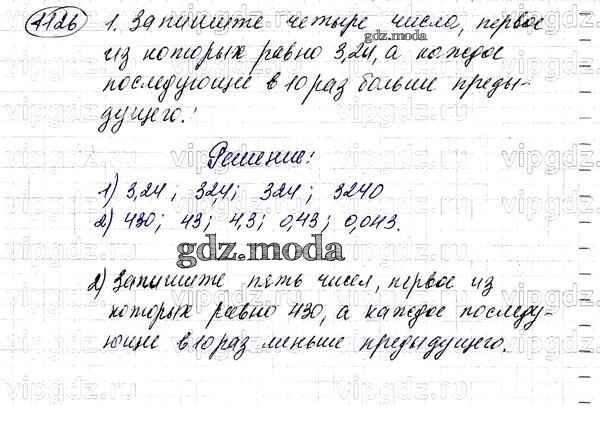 1126
1. Запишите четыре числа, первое
из которых равно 3,24, а каждое
последующие в 10 раз больше преды-
дущего.
Решение:
1) 3,24; 32,4; 324; 3240
2) 430; 43; 4,3; 0,43; 0,043.
gdz.moda
2) Запишите пять чисел, первое из
которых равно 430, а каждое последу-
ющие в 10 раз меньше предыдущего.